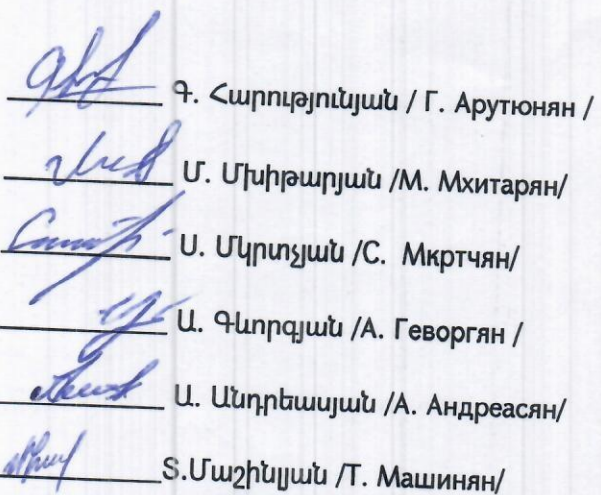 Գ. Հարությունյան / Г. Арутюнян /
Մ. Մխիթարյան /М. Мхитарян/
Ս. Մկրտչյան /С. Мкртчян/
Ա. Գևորգյան /А. Геворгян /
Ա. Անդրեասյան /А. Андреасян/
Տ.Մաշինյան /Т. Машинян/